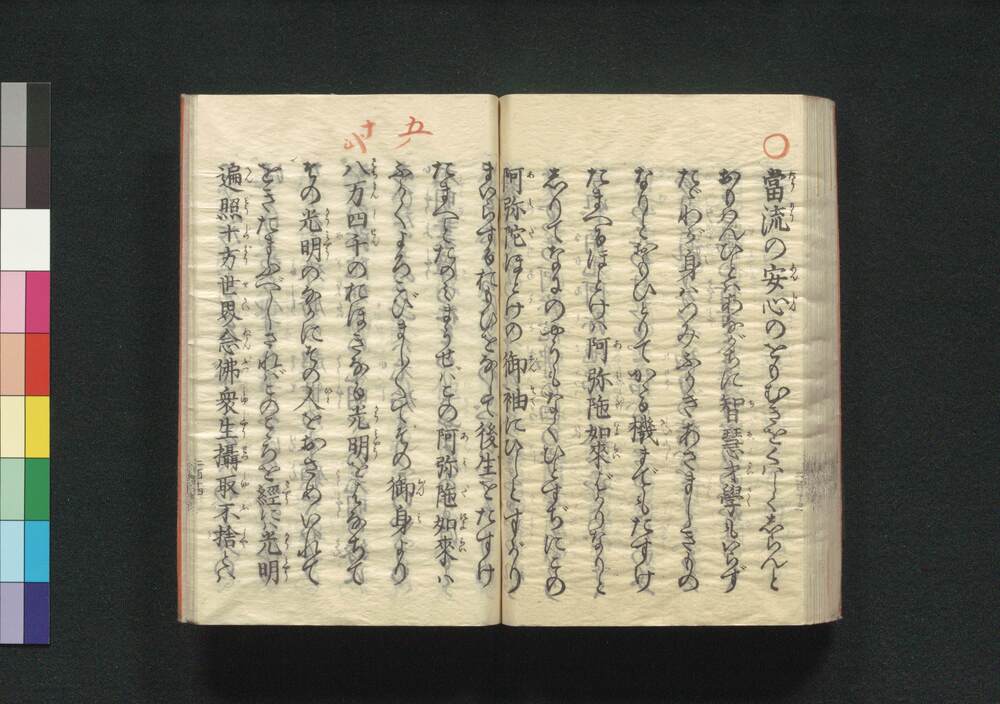 ○
當流の安心のをもむきをくはしくしらんと
おもはんひとはあながちに智慧才學もいらず
たゞわが身はつみふかきあさましきもの
なりとおもひとりてかゝる機までもたすけ
たまへるほとけは阿弥陁如來ばかりなりと
しりてなにのやうもなくひとすぢにこの
阿弥陀ほとけの御袖にひしとすがり
まいらするおもひをなして後生をたすけ
たまへとたのみまうせばこの阿弥陁如來は
ふかくよろこびましましてその御身より
八万四千のおほきなる光明をはなちて
その光明のなかにその人をおさめいれて
をきたまふべしさればこのこゝろを經には光明
遍照十方世界念佛衆生攝取不捨とは
五ノ
十二